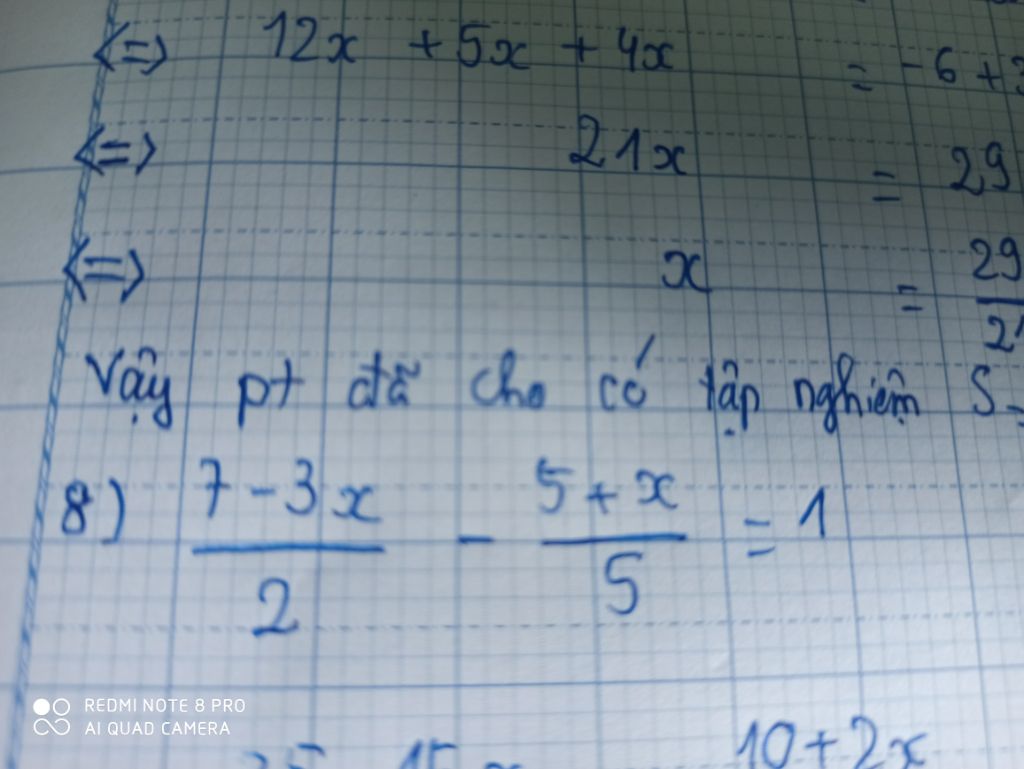 <=> 12x + 5x + 4x = -6 +
<=> 21x = 29
<=> x = 29/21
Vậy pt đã cho có tập nghiệm S =
8) (7 - 3x)/2 - (5 + x)/5 = 1
REDMI NOTE 8 PRO
AI QUAD CAMERA
10 + 2x